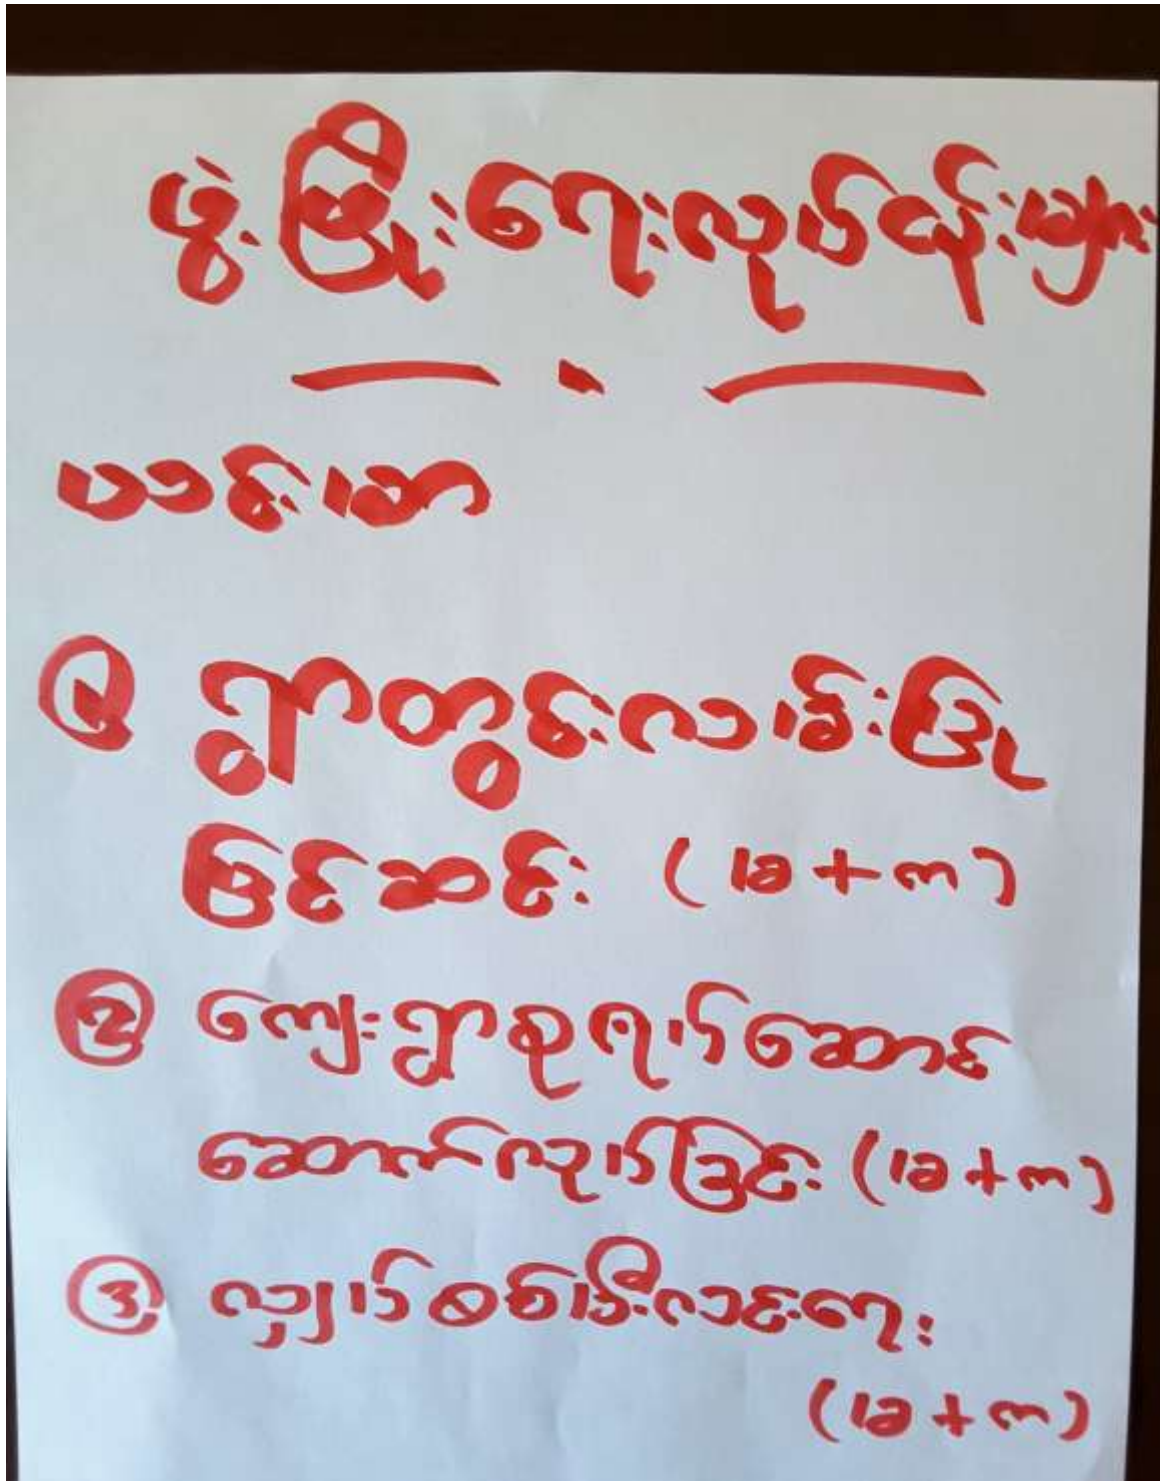 ဖွံ့ဖြိုးရေးလုပ်ငန်းများ
ပထမဆော
၁ ရွာတွင်းလမ်းပြု
ပြင်ဆင်း (ခ+က)
၂ ကျေးရွာစုရပ်ဆောင်
ဆောက်လုပ်ခြင်း (ခ+က)
၃ လျှပ်စစ်မီးလင်းရေး
(ခ+က)